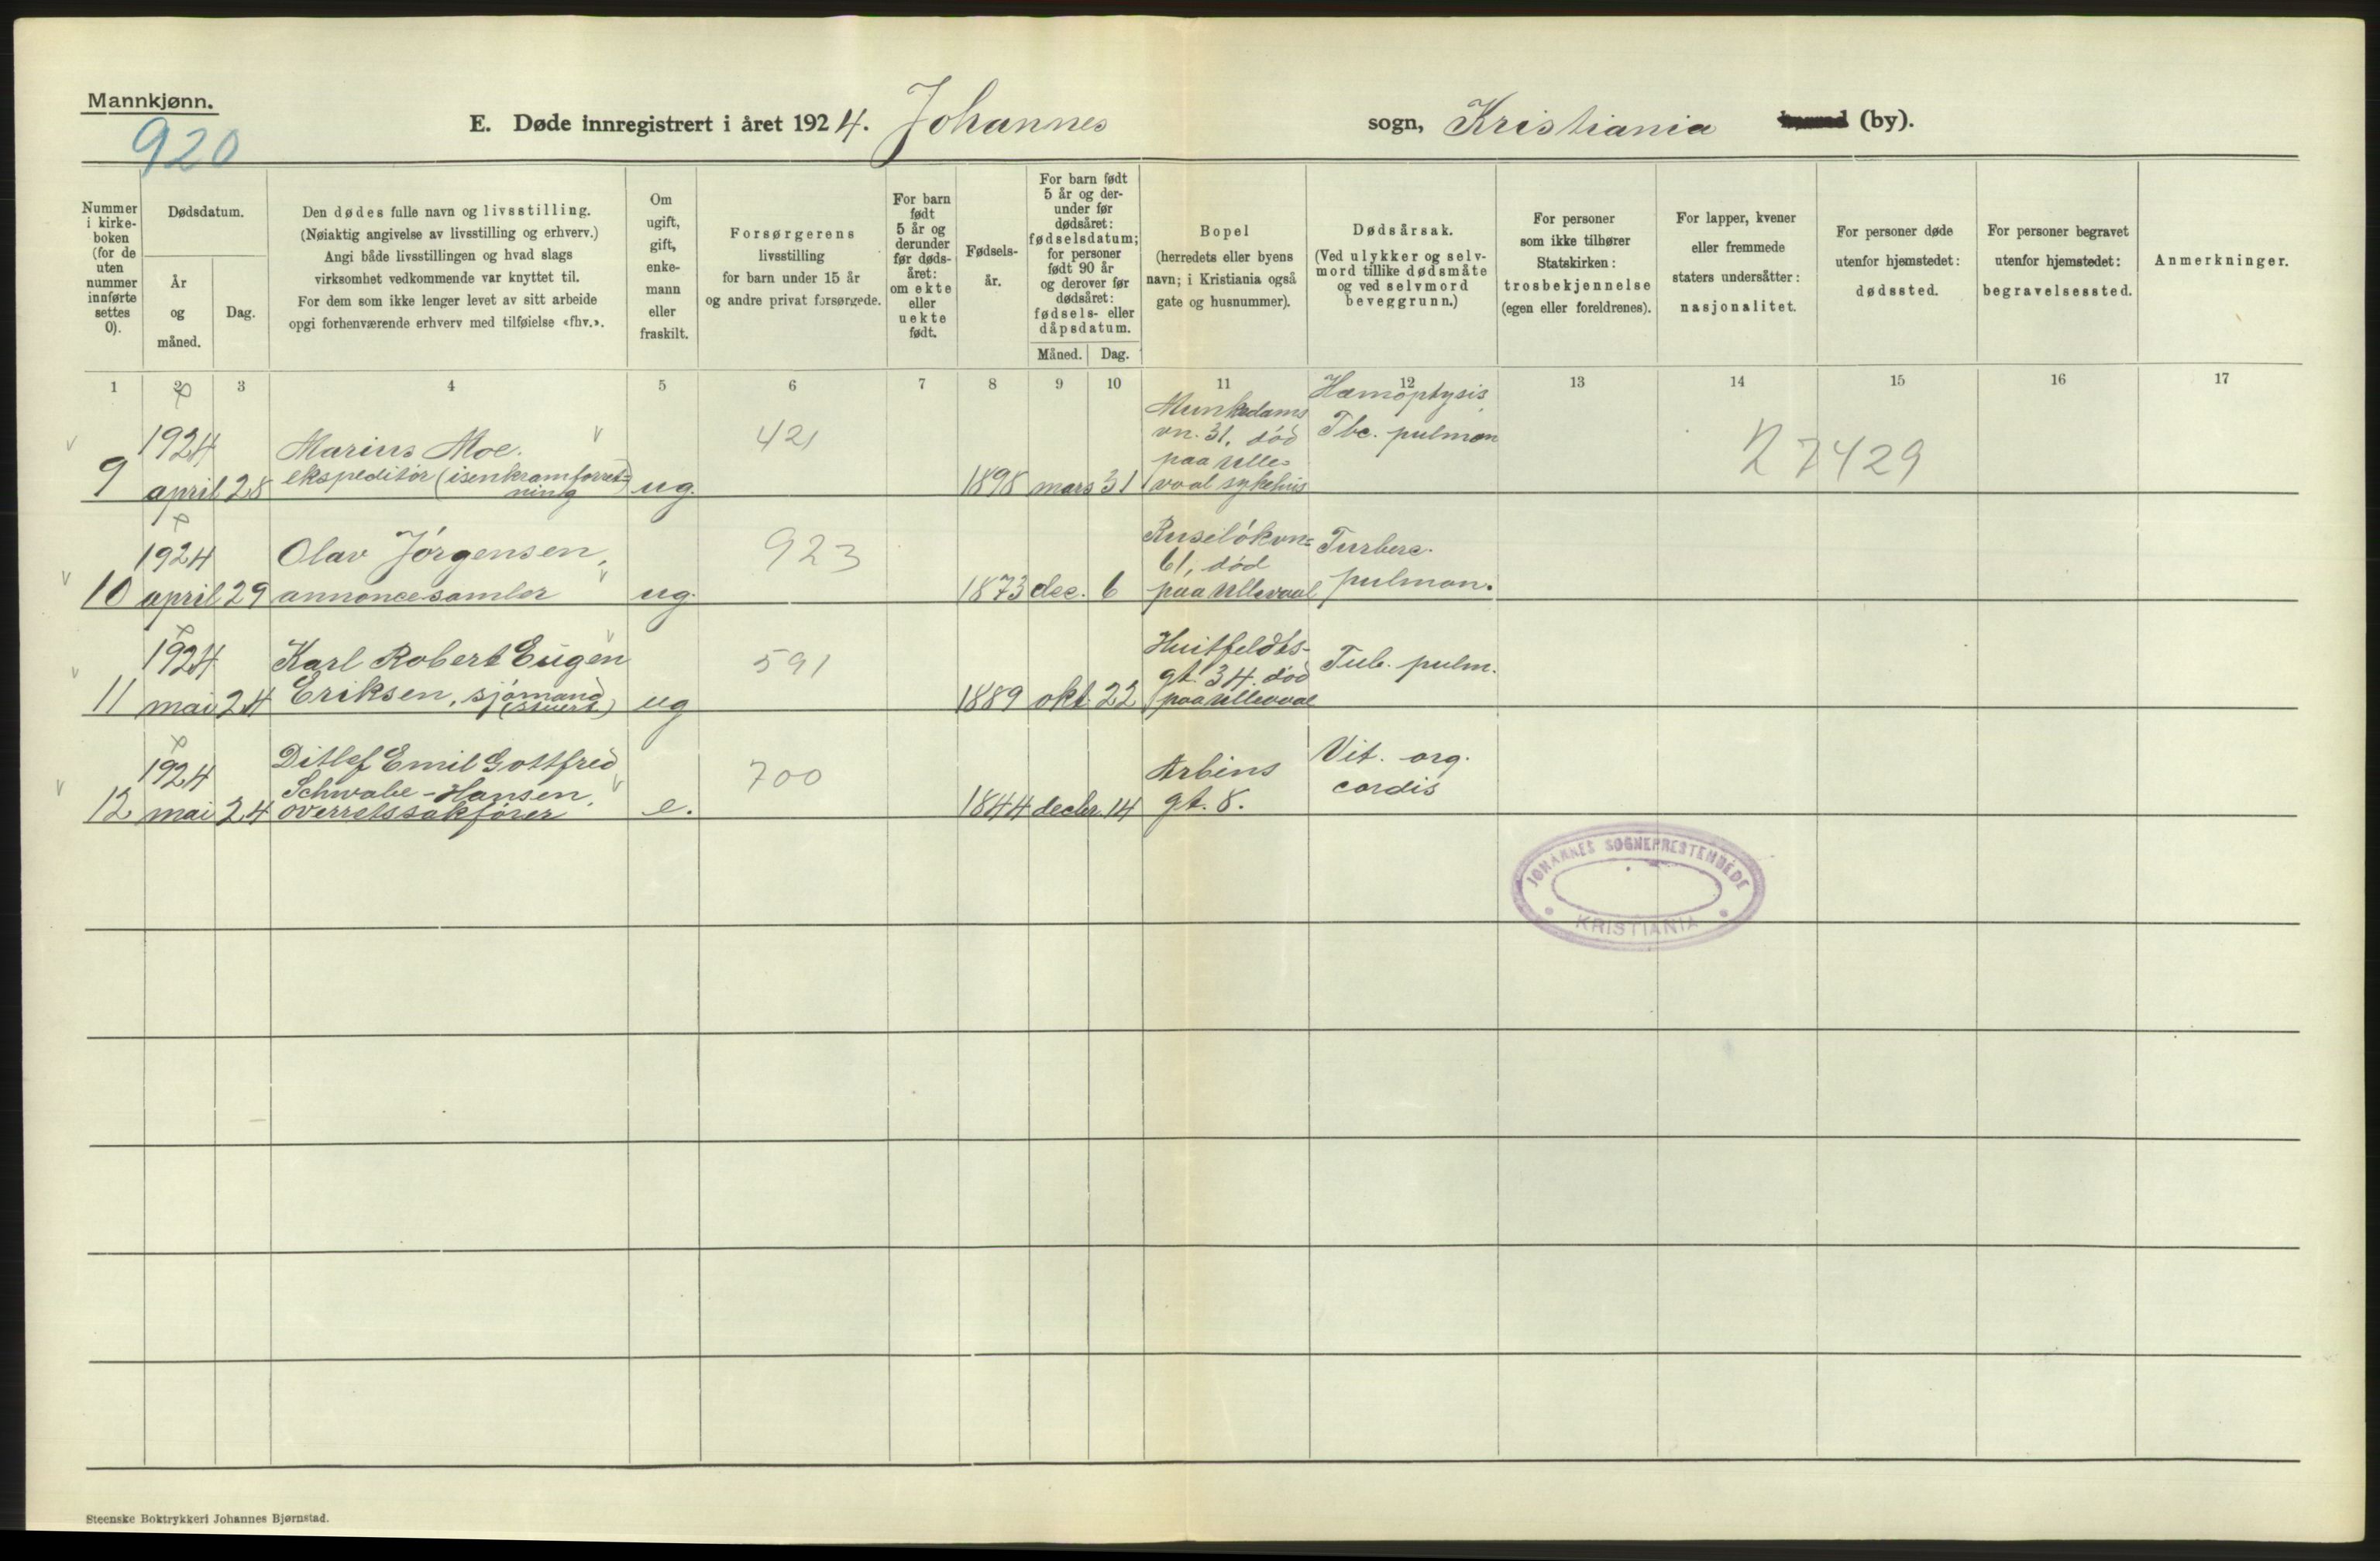 Mannkjønn.
920
E. Døde innregistrert i året 1924. Johannes sogn, Kristiania (by).
Nummer i kirkeboken (for de uten nummer innførte settes 0).
Dødsdatum.
År og måned.
Dag.
Den dødes fulle navn og livsstilling.
(Nøiaktig angivelse av livsstilling og erhverv.)
Angi både livsstillingen og hvad slags
virksomhet vedkommende var knyttet til.
For dem som ikke lenger levet av sitt arbeide
opgi forhenværende erhverv med tilføielse «fhv.».
Om ugift, gift, enkemann eller fraskilt.
Forsørgerens
livsstilling
for barn under 15 år
og andre privat forsørgede.
For barn født 5 år og derunder før dødsåret: om ekte eller uekte født.
Fødselsår.
For barn født 5 år og derunder før dødsåret: fødselsdatum; for personer født 90 år og derover før dødsåret: fødsels- eller dåpsdatum.
Måned. Dag.
Bopel
(herredets eller byens
navn; i Kristiania også
gate og husnummer).
Dødsårsak.
(Ved ulykker og selvmord tillike dødsmåte og ved selvmord beveggrunn.)
For personer
som ikke tilhører
Statskirken:
trosbekjennelse
(egen eller foreldrenes).
For lapper, kvener
eller fremmede
staters undersåtter:
nasjonalitet.
For personer døde
utenfor hjemstedet:
dødssted.
For personer begravet
utenfor hjemstedet:
begravelsessted.
Anmerkninger.
1 2 3 4 5 6 7 8 9 10 11 12 13 14 15 16 17
9 1924 april 28 Marius Moe. ekspeditör (isenkramforret=ning) ug. 421 1898 mars 31 Munkedams vn. 31, död paa Ulle=vaal sykehus Hæmoptysis, Tbc. pulmon 27429
10 1924 april 29 Olav Jörgensen, annoncesamler ug. 923 1873 dec. 6 Ruselökvn= 61, död paa Ullevaal Turberc. pulmon.
11 1924 mai 24 Karl Robert Eugen Eriksen, sjömand (stuert) ug 591 1889 okt. 22 Huitfeldts-gt. 34. död paa Ullevaal Tub. pulm.
12 1924 mai 24 Ditlef Emil Gottfred Schwabe-Hansen, overretssakförer e. 700 1844 decbr. 14 Arbins gt. 8. Vit. org. cordis
JOHANNES SOGNEPRESTEMBEDE
KRISTIANIA
Steenske Boktrykkeri Johannes Bjørnstad.